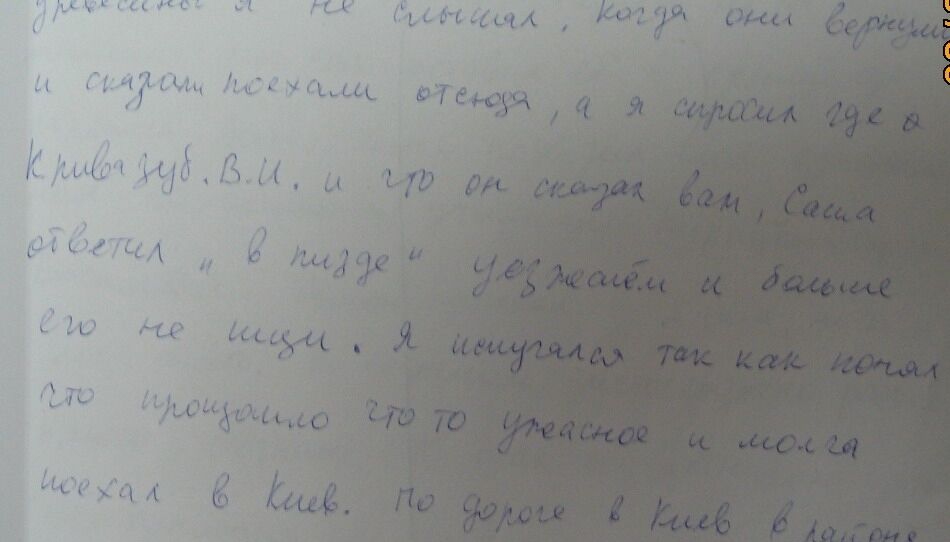 я не слышал, когда они вернули
и сказали поехали отсюда, а я спросил где
Кривазуб.В.И. и что он сказал вам, Саша
ответил „в пизде“ уезжаем и больше
его не ищи. Я испугался так как понял
что произошло что то ужасное и молча
поехал в Киев. По дороге в Киев в районе